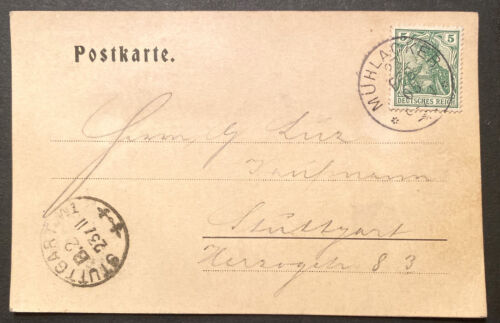 Postkarte.
5 5
DEUTSCHES REICH
MÜHLACKER
Herrn G Lutz
Kaufmann
Stuttgart
Herzogstr 83
STUTTGART
B.2
23/11